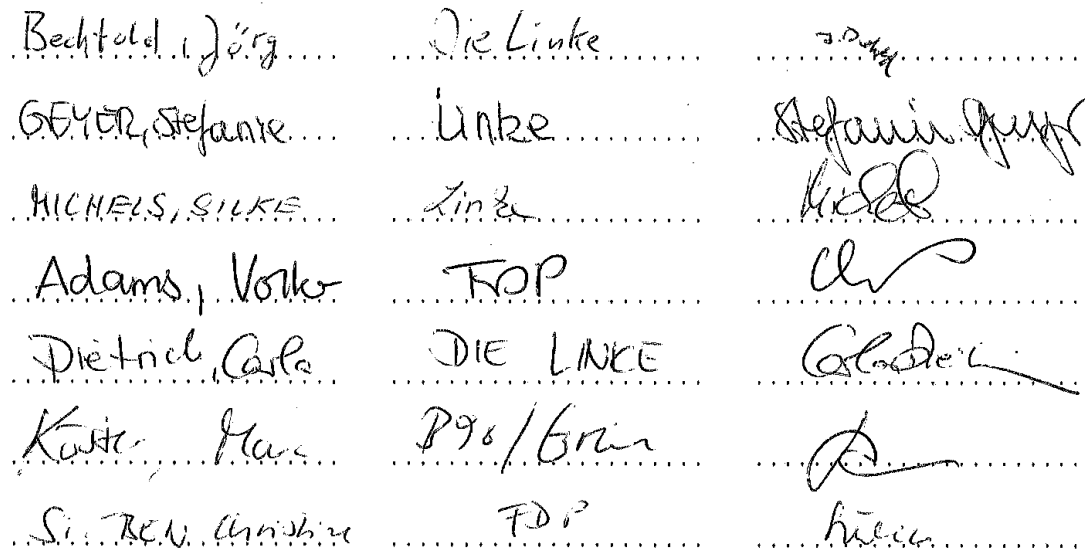 Bechtold, Jörg Die Linke
GEYER, Stefanie Linke Stefanie Geyer
MICHELS, SILKE Linke Michels
Adams, Volker FDP
Dietrich, Carla DIE LINKE Carla Dietrich
B90/Grün
Christine FDP